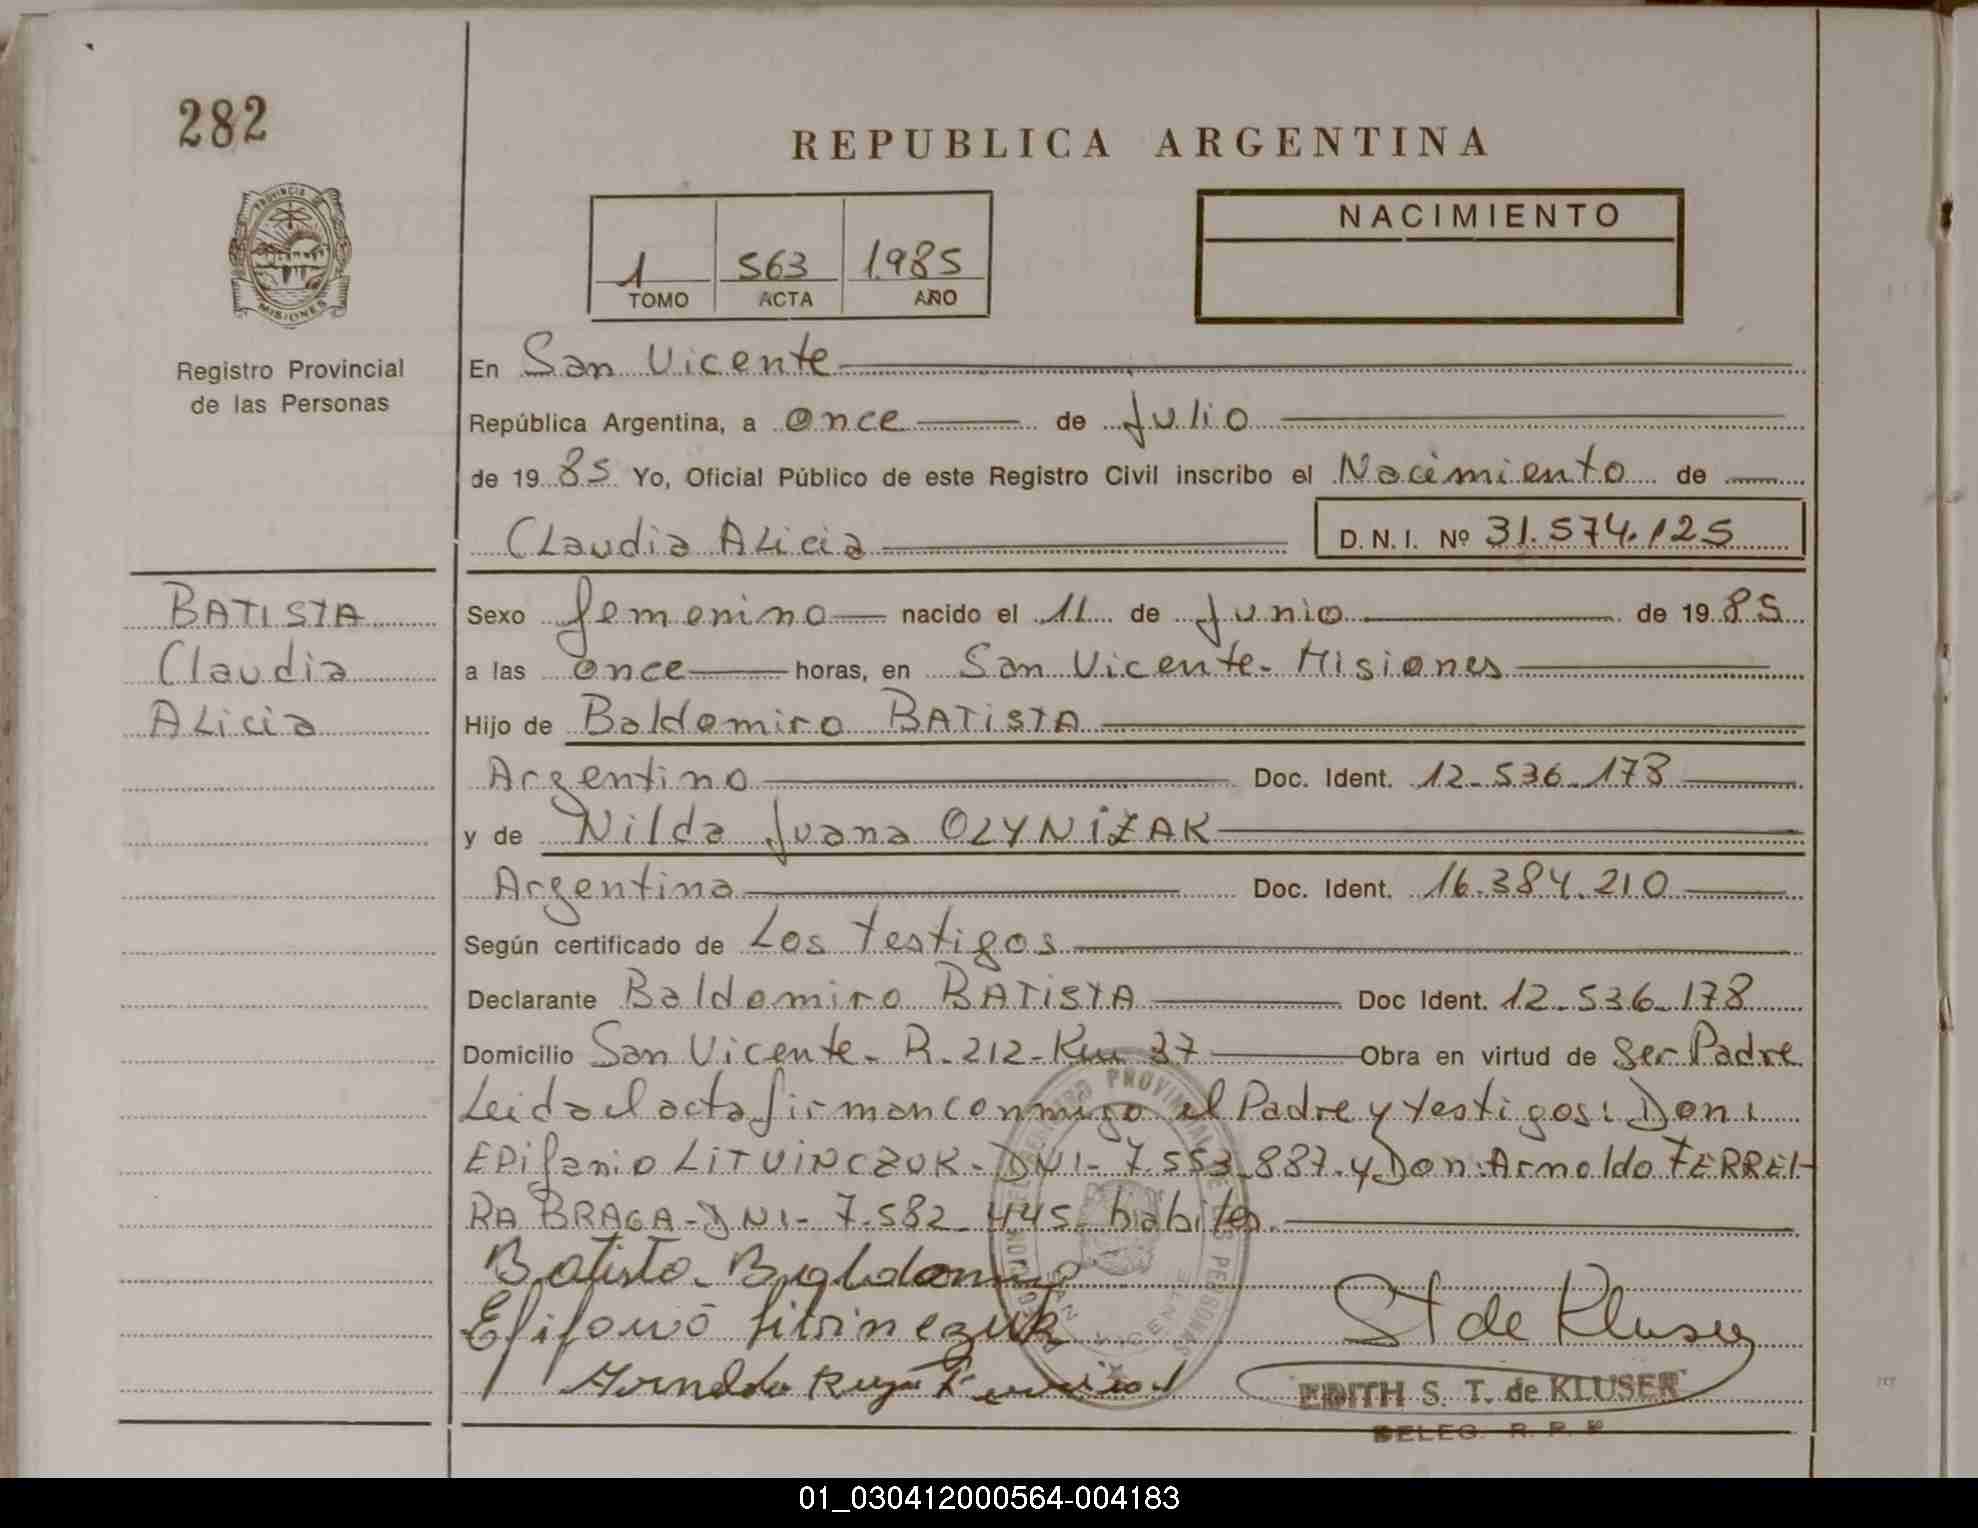 282
REPUBLICA ARGENTINA
PROVINCIA DE
MISIONES
1 563 1985
TOMO ACTA AÑO
NACIMIENTO
Registro Provincial
de las Personas
En San Vicente
República Argentina, a once de Julio
de 19 85 Yo, Oficial Público de este Registro Civil inscribo el Nacimiento de
Claudia Alicia D. N. I. Nº 31.574.125
BATISTA
Claudia
Alicia
Sexo femenino nacido el 11 de Junio de 19 85
a las once horas, en San Vicente - Misiones
Hijo de Baldomiro BATISTA
Argentino Doc. Ident. 12-536-178
y de Nilda Juana OLYNIZAK
Argentina Doc. Ident. 16.384.210
Según certificado de Los testigos
Declarante Baldomiro BATISTA Doc Ident. 12-536-178
Domicilio San Vicente - R-212-Km 37 Obra en virtud de Ser Padre
Leida el acta firman conmigo el Padre y testigos: Don:
EPifanio LITVINCZUK - DNI - 7.553.887 y Don: Arnoldo FERREI-
RA BRAGA - DNI - 7.582.445 - habiles
Batista
St de Kluser
EDITH S. T. de KLUSER
DELEG. R. P. P
SAN VICENTE
01_030412000564-004183